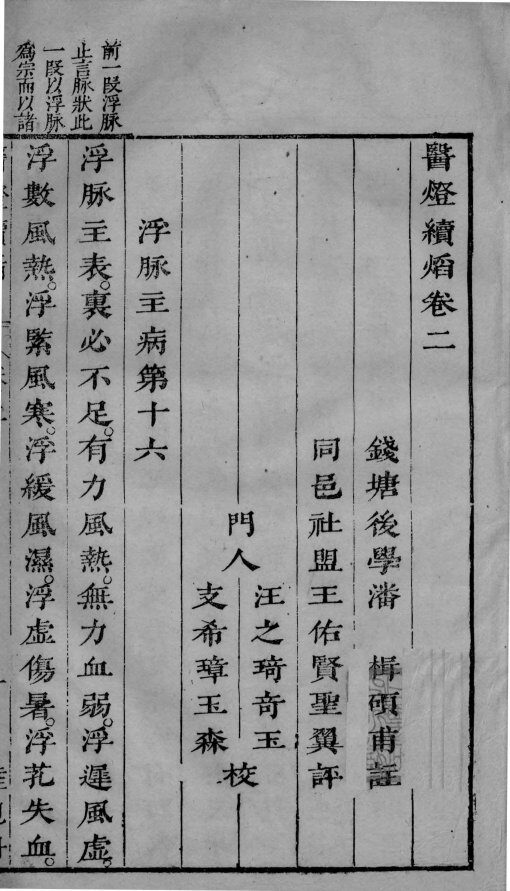 醫燈續焰卷二
錢塘後學潘　楫碩甫註
同邑社盟王佑賢聖翼評
門人
汪之琦奇玉
支希璋玉森
校
浮脉主病第十六
浮脉主表。裏必不足。有力風熱。無力血弱。浮遲風虛。
浮數風熱。浮緊風寒。浮緩風濕。浮虛傷暑。浮芤失血。
前一段浮脉
止言脉狀此
一段以浮脉
爲宗而以諸